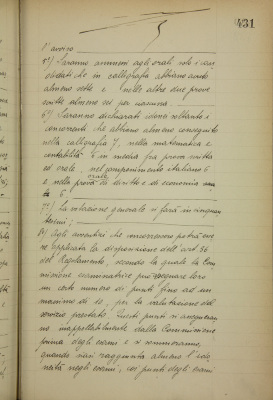 431
l'avviso.
5°) Saranno ammessi agli orali solo i can-
didati che in calligrafia abbiano avuto
almeno sette e nelle altre due prove
scritte almeno sei per ciascuna.
6°) Saranno dichiarati idonei soltanto i
concorrenti che abbiano almeno conseguito
nella calligrafia 7, nella matematica e
contabilità 6 in media fra prova scritta
ed orale, nel componimento italiano 6
e nella prova orale di diritto ed economia
6
7°) La votazione generale si farà in cinquan-
tesimi;
8°) Agli avventizi che concorressero potrà es-
sere applicata la disposizione dell'art. 56
del Regolamento, secondo la quale la Com-
missione esaminatrice può assegnare loro
un certo numero di punti fino ad un
massimo di 10, per la valutazione del
servizio prestato. Questi punti si assegneran-
no inappellabilmente dalla Commissione
prima degli esami e si sommeranno,
quando sarà raggiunta almeno l'ido-
neità negli esami, coi punti degli esami